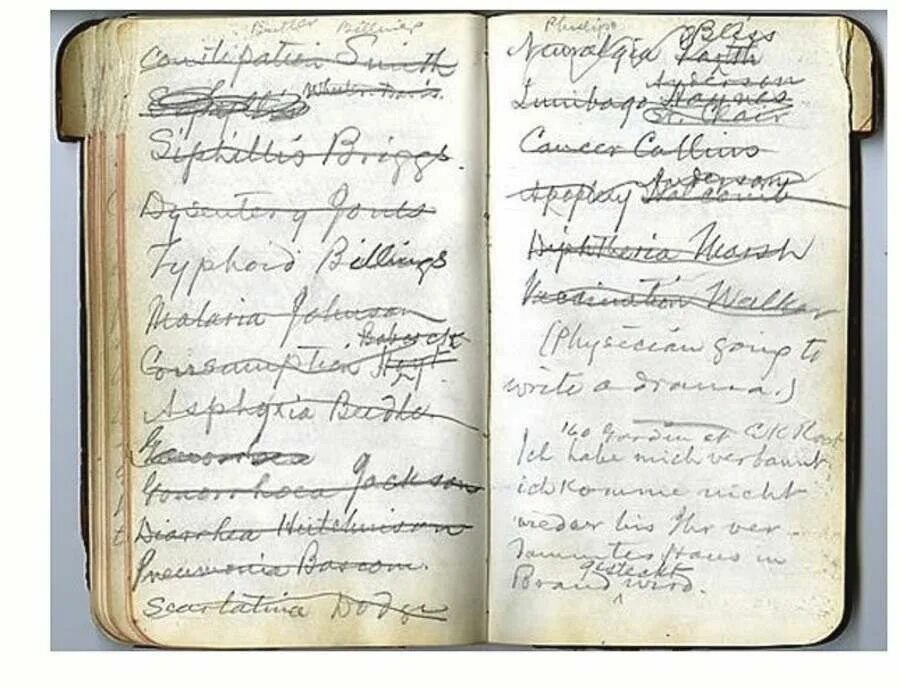 Butler Billings
Constipation Smith
Wheeler Davis.
Siphillis Briggs.
Dysentery Jones
Typhoid Billings
Malaria Johnson
Babcock
Consumption Hoyt.
Asphyxia Beedle.
Gonorrhoea Jackson
Diarrhea Hutchinson
Pneumonia Bascom.
Scarlatina Dodge
Phillips Bliss
Neuralgia
Anderson
Lumbago Haynes
St. Clair
Cancer Collins
Anderson
Apoplexy Holcomb
Diphtheria Marsh
Vaccination Walker
(Physician going to
write a drama.)
'60 Garden at
Ich habe mich verbannt,
ich komme nicht
wieder bis Ihr ver
dammtes Haus in
gesteckt
Brand wird.